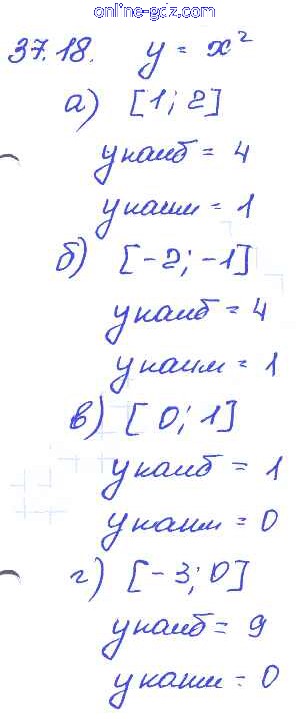 online-gdz.com
37.18. y = x²
а) [1; 2]
yнаиб = 4
yнаим = 1
б) [-2; -1]
yнаиб = 4
yнаим = 1
в) [0; 1]
yнаиб = 1
yнаим = 0
г) [-3; 0]
yнаиб = 9
yнаим = 0